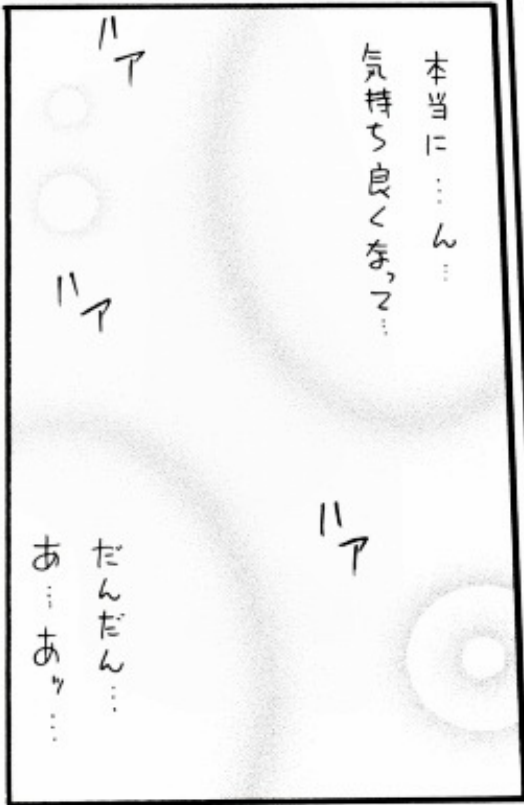 本当に…ん…
気持ち良くなって…
ハア
ハア
ハア
だんだん…
あ…あッ…